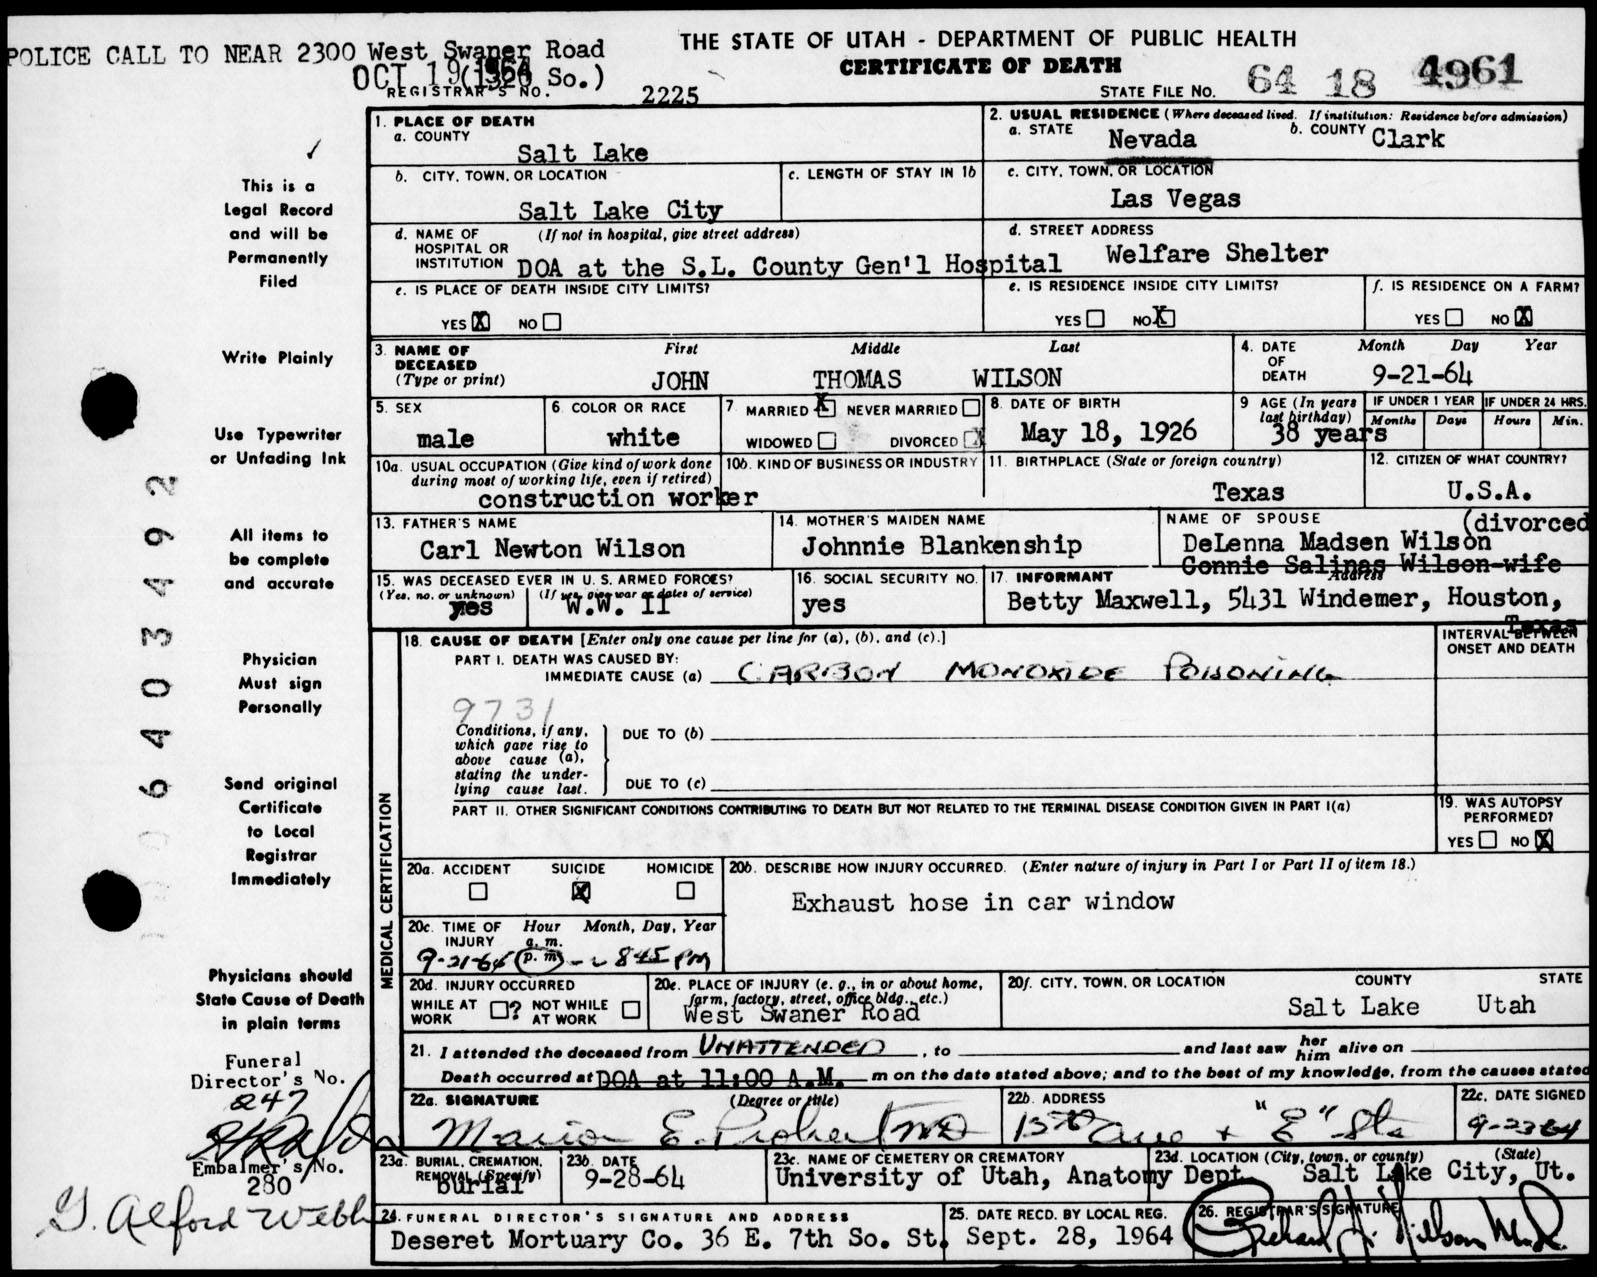 POLICE CALL TO NEAR 2300 West Swaner Road
(1320 So.)
OCT 19 1964
REGISTRAR'S NO. 2225
THE STATE OF UTAH - DEPARTMENT OF PUBLIC HEALTH
CERTIFICATE OF DEATH
STATE FILE NO. 64 18 4961
This is a
Legal Record
and will be
Permanently
Filed
Write Plainly
Use Typewriter
or Unfading Ink
All items to
be complete
and accurate
Physician
Must sign
Personally
Send original
Certificate
to Local
Registrar
Immediately
Physicians should
State Cause of Death
in plain terms
Funeral
Director's No.
247
Embalmer's No.
280
G. Alford Webb
6403492
1. PLACE OF DEATH
a. COUNTY
Salt Lake
b. CITY, TOWN, OR LOCATION
Salt Lake City
c. LENGTH OF STAY IN 1b
d. NAME OF HOSPITAL OR INSTITUTION (If not in hospital, give street address)
DOA at the S.L. County Gen'l Hospital
e. IS PLACE OF DEATH INSIDE CITY LIMITS?
YES X NO
2. USUAL RESIDENCE (Where deceased lived. If institution: Residence before admission)
a. STATE Nevada b. COUNTY Clark
c. CITY, TOWN, OR LOCATION
Las Vegas
d. STREET ADDRESS
Welfare Shelter
e. IS RESIDENCE INSIDE CITY LIMITS?
YES NO X
f. IS RESIDENCE ON A FARM?
YES NO X
3. NAME OF DECEASED (Type or print)
First Middle Last
JOHN THOMAS WILSON
4. DATE OF DEATH Month Day Year
9-21-64
5. SEX
male
6. COLOR OR RACE
white
7. MARRIED X NEVER MARRIED
WIDOWED DIVORCED X
8. DATE OF BIRTH
May 18, 1926
9 AGE (In years last birthday)
38 years
IF UNDER 1 YEAR
Months Days
IF UNDER 24 HRS.
Hours Min.
10a. USUAL OCCUPATION (Give kind of work done during most of working life, even if retired)
construction worker
10b. KIND OF BUSINESS OR INDUSTRY
11. BIRTHPLACE (State or foreign country)
Texas
12. CITIZEN OF WHAT COUNTRY?
U.S.A.
13. FATHER'S NAME
Carl Newton Wilson
14. MOTHER'S MAIDEN NAME
Johnnie Blankenship
NAME OF SPOUSE (divorced
DeLenna Madsen Wilson
Connie Salinas Wilson-wife
15. WAS DECEASED EVER IN U.S. ARMED FORCES?
(Yes, no, or unknown) (If yes, give war or dates of service)
yes W.W. II
16. SOCIAL SECURITY NO.
yes
17. INFORMANT Address
Betty Maxwell, 5431 Windemer, Houston,
Texas
MEDICAL CERTIFICATION
18. CAUSE OF DEATH [Enter only one cause per line for (a), (b), and (c).]
INTERVAL BETWEEN ONSET AND DEATH
PART I. DEATH WAS CAUSED BY:
IMMEDIATE CAUSE (a) CARBON MONOXIDE POISONING
9731
Conditions, if any, which gave rise to above cause (a), stating the underlying cause last.
DUE TO (b)
DUE TO (c)
PART II. OTHER SIGNIFICANT CONDITIONS CONTRIBUTING TO DEATH BUT NOT RELATED TO THE TERMINAL DISEASE CONDITION GIVEN IN PART I(a)
19. WAS AUTOPSY PERFORMED?
YES NO X
20a. ACCIDENT SUICIDE HOMICIDE
X
20b. DESCRIBE HOW INJURY OCCURRED. (Enter nature of injury in Part I or Part II of item 18.)
Exhaust hose in car window
20c. TIME OF INJURY Hour Month, Day, Year
a. m.
p. m.
9-21-64 845 PM
20d. INJURY OCCURRED
WHILE AT WORK ? NOT WHILE AT WORK
20e. PLACE OF INJURY (e. g., in or about home, farm, factory, street, office bldg., etc.)
West Swaner Road
20f. CITY, TOWN, OR LOCATION COUNTY STATE
Salt Lake Utah
21. I attended the deceased from UNATTENDED, to and last saw her him alive on
Death occurred at DOA at 11:00 A.M. m on the date stated above; and to the best of my knowledge, from the causes stated
22a. SIGNATURE (Degree or title)
Marion E. Probert MD
22b. ADDRESS
13th Ave + "E" Sts
22c. DATE SIGNED
9-23-64
23a. BURIAL, CREMATION, REMOVAL (Specify)
burial
23b. DATE
9-28-64
23c. NAME OF CEMETERY OR CREMATORY
University of Utah, Anatomy Dept.
23d. LOCATION (City, town, or county) (State)
Salt Lake City, Ut.
24. FUNERAL DIRECTOR'S SIGNATURE AND ADDRESS
Deseret Mortuary Co. 36 E. 7th So. St.
25. DATE RECD. BY LOCAL REG.
Sept. 28, 1964
26. REGISTRAR'S SIGNATURE